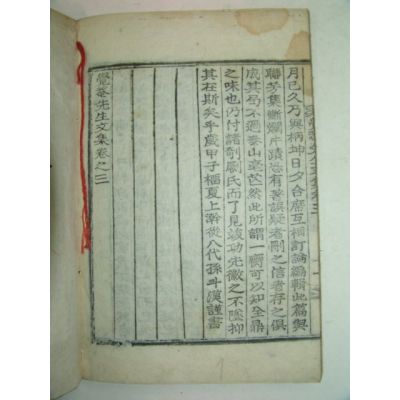 月已久乃與柄坤日夕合席互相訂論編輯此篇與
聯芳集斷爛片蹟恐有誤疑者刪之信者存之俱
成其局不過泰山毫芒然此所謂一臠可以知全鼎
之味也仍付諸剞劂氏而了見竣功先徽之不墜抑
其在斯矣乎歲甲子榴夏上澣從八代孫斗漢謹書
覺菴先生文集卷之三